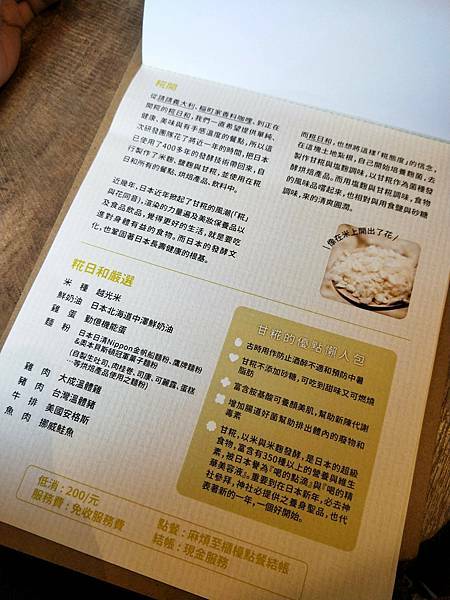 糀開
從請請義大利、稲町家香料咖哩、到正在
開糀的糀日和，我們一直希望提供單純、
健康、美味與有手感溫度的餐點，所以這
次研發團隊花了將近一年的時間，把日本
已使用了400多年的發酵技術帶回來，自
行製作了米麴、鹽麴與甘糀，並使用在糀
日和所有的餐點、烘焙產品、飲料中。
近幾年，日本近年掀起了甘糀的風潮(「糀」
與花同音)，渲染的力量遍及美妝保養品以
及食品飲品，覺得更好的生活，就是要吃
進對身體有益的食物。而日本的發酵文
化，也鞏固著日本長壽健康的根基。
而糀日和，也想將這樣「糀態度」的信念，
在這塊土地紮根，自己開始培養麴菌，去
製作甘糀與塩麴調味，以甘糀作為菌種發
酵烘焙產品。而用塩麴與甘糀調味，食物
的風味品嚐起來，也相對與用食鹽與砂糖
調味，來的清爽圓潤。
像在米上開出了花
糀日和嚴選
米種 越光米
鮮奶油 日本北海道中澤鮮奶油
雞蛋 動億機能蛋
麵粉 日本日清Nippon金帆船麵粉、鷹牌麵粉
&奧本貝斯頓冠軍菓子麵粉
(自製生吐司、肉桂卷、司康、可麗露、蛋糕
…等烘焙產品使用之麵粉)
雞肉 大成溫體雞
豬肉 台灣溫體豬
牛排 美國安格斯
魚肉 挪威鮭魚
甘糀的優點懶人包
古時用作防止酒醉不適和預防中暑
甘糀不添加砂糖，可吃到甜味又可燃燒
脂肪
富含胺基酸可養顏美肌，幫助新陳代謝
增加腸道好菌幫助排出體內的廢物和
毒素
甘糀，以米與米麴發酵，是日本的超級
食物，富含有350種以上的營養與維生
素，被日本譽為『喝的點滴』與『喝的精
華美容液』。重要到在日本新年，必去神
社參拜，神社必提供之養身聖品，也代
表著新的一年，一個好開始。
低消：200/元
服務費：免收服務費
點餐：麻煩至櫃檯點餐結帳
結帳：現金服務